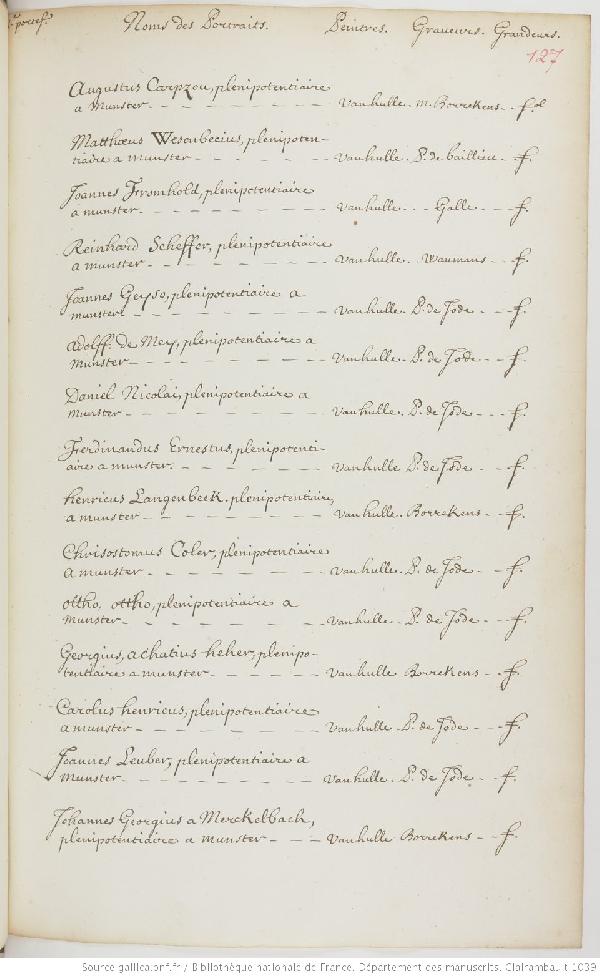 portef. Noms des Portraits. Peintres. Graveurs. Grandeurs.
127
Augustus Carpzou, plenipotentiaire
a Munster - - - - - - Vanhulle. m. Borrekens - f.ol
Matthœus Wesenbecius, plenipoten-
tiaire a munster - - - - - Vanhulle. P. de bailliu - f.
Joannes Fromhold, plenipotentiaire
a munster. - - - - - - Vanhulle. - - Galle - - - f.
Reinhard Scheffer, plenipotentiaire
a munster - - - - - - Vanhulle. Waumans - - f.
Joannes Geyso, plenipotentiaire a
munster - - - - - - Vanhulle. P. de Jode - - f.
Adolff. de Mey, plenipotentiaire a
munster - - - - - - Vanhulle. P. de Jode - - - f.
Daniel Nicolai, plenipotentiaire a
munster - - - - - - Vanhulle. P. de Jode - - - f.
Ferdinandus Ernestus, plenipotenti-
aire a munster. - - - - - Vanhulle P. de Jode - - f.
henricus Langenbeek. plenipotentiaire,
a munster - - - - - - Vanhulle. Borrekens - - f.
Chrisostomus Coler, plenipotentiaire
a munster - - - - - - Vanhulle. P. de Jode - - f.
ottho, ottho, plenipotentiaire a
munster - - - - - - Vanhulle. P. de Jode - - f.
Georgius, achatius heher, plenipo-
tentiaire a munster - - - - Vanhulle Borrekens - - f.
Carolus henricus, plenipotentiaire
a munster - - - - - - Vanhulle P. de Jode - - - f.
Joannes Leuber, plenipotentiaire a
munster - - - - - - Vanhulle. P. de Jode - - f.
Johannes Georgius a Merckelbach,
plenipotentiaire a munster - - - Vanhulle Borrekens - - f.
Source gallica.bnf.fr / Bibliothèque nationale de France. Département des manuscrits. Clairambault 1039